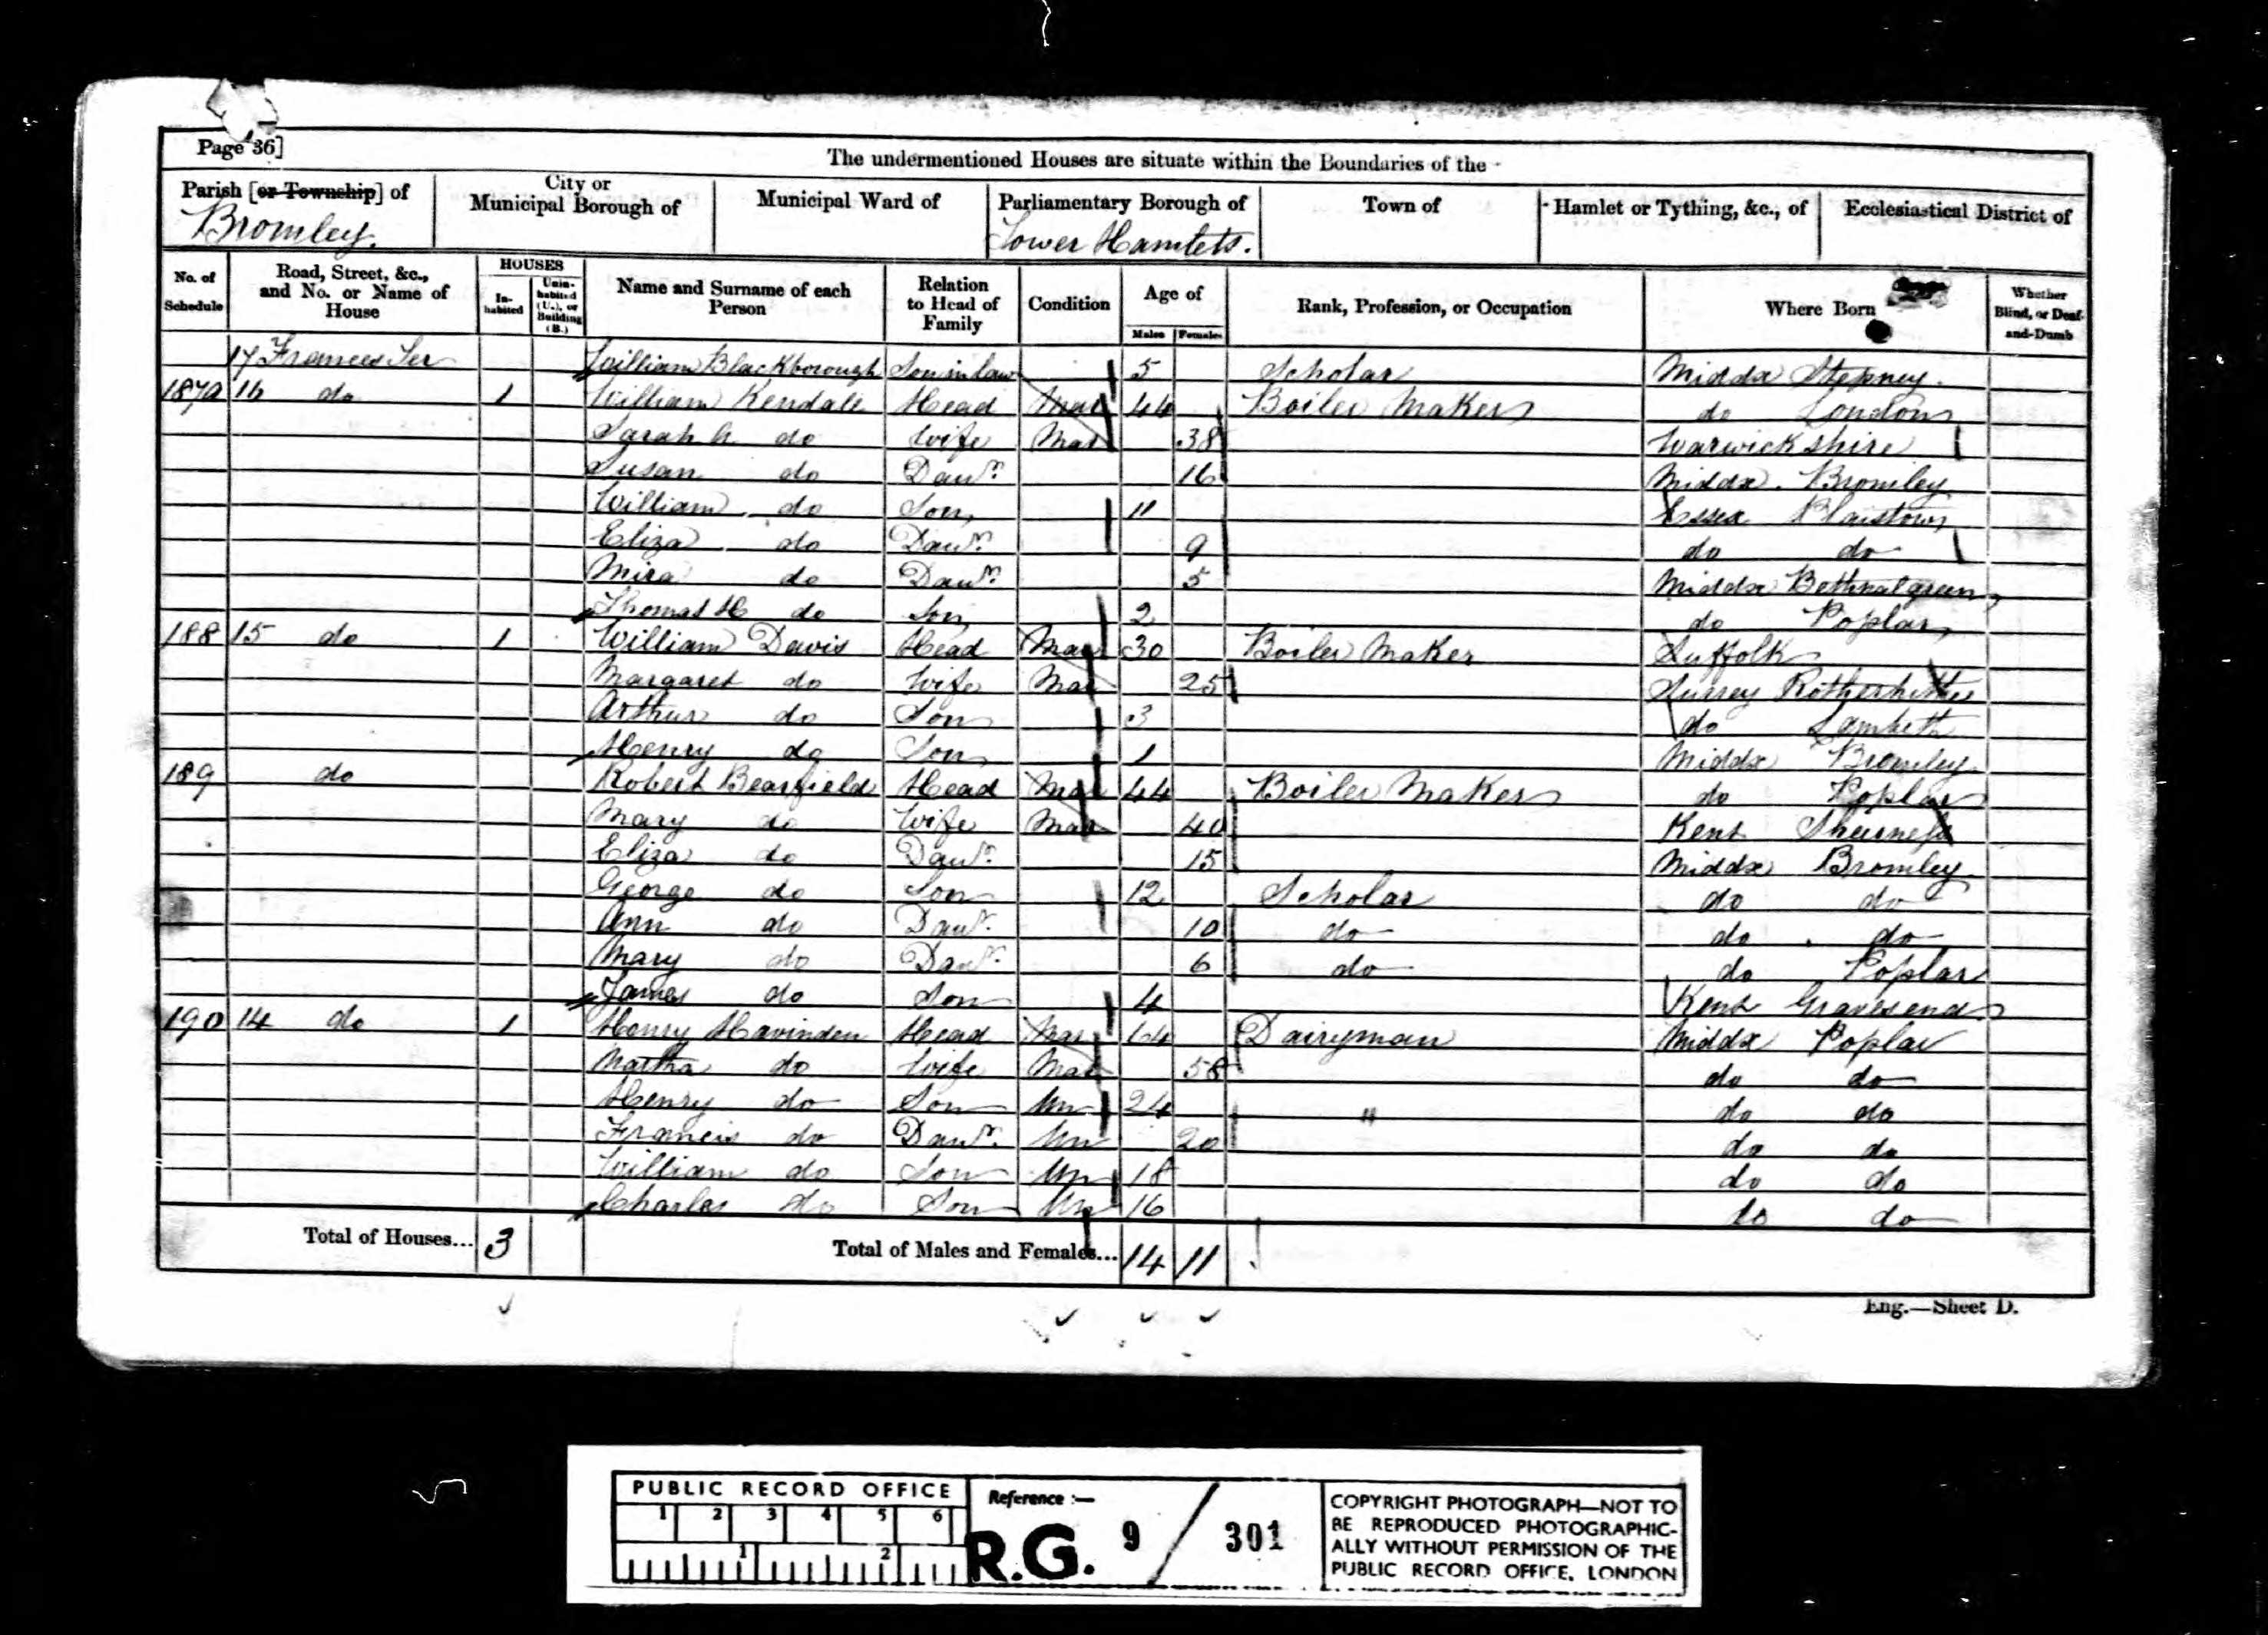 Page 36]
The undermentioned Houses are situate within the Boundaries of the
Parish [or Township] of Bromley.
City or Municipal Borough of
Municipal Ward of
Parliamentary Borough of Tower Hamlets.
Town of
Hamlet or Tything, &c., of
Ecclesiastical District of
No. of Schedule
Road, Street, &c., and No. or Name of House
HOUSES
In-habited
Unin-habited (U.), or Building (B.)
Name and Surname of each Person
Relation to Head of Family
Condition
Age of
Males Females
Rank, Profession, or Occupation
Where Born
Whether Blind, or Deaf-and-Dumb
17 Frances Ter William Blackborough Son in law 5 Scholar Middx Stepney.
187 16 do 1 William Kendall Head Mar 44 Boiler Maker do London
Sarah do Wife Mar 38 Warwickshire
Susan do Daur. 16 Middx. Bromley
William do Son 11 Essex Plaistow
Eliza do Daur. 9 do do
Mira do Daur. 5 Middx Bethnal green
Thomas H do Son 2 do Poplar
188 15 do 1 William Davis Head Mar 30 Boiler Maker Suffolk
Margaret do Wife Mar 25 Surrey Rotherhithe
Arthur do Son 3 do Lambeth
Henry do Son 1 Middx Bromley
189 do Robert Bearfield Head Mar 44 Boiler Maker do Poplar
Mary do Wife Mar 40 Kent Sheerness
Eliza do Daur. 15 Middx Bromley
George do Son 12 Scholar do do
Ann do Daur. 10 do do do
Mary do Daur. 6 do do Poplar
James do Son 4 Kent Gravesend
190 14 do 1 Henry Havinden Head Mar 64 Dairyman Middx Poplar
Martha do Wife Mar 58 do do
Henry do Son Un 24 " do do
Francis do Daur. Un 20 do do
William do Son Un 18 do do
Charles do Son Un 16 do do
Total of Houses... 3
Total of Males and Females... 14 11
Eng.—Sheet D.
PUBLIC RECORD OFFICE
1 2 3 4 5 6
1 2
Reference :—
R.G. 9 / 301
COPYRIGHT PHOTOGRAPH—NOT TO
BE REPRODUCED PHOTOGRAPHIC-
ALLY WITHOUT PERMISSION OF THE
PUBLIC RECORD OFFICE, LONDON